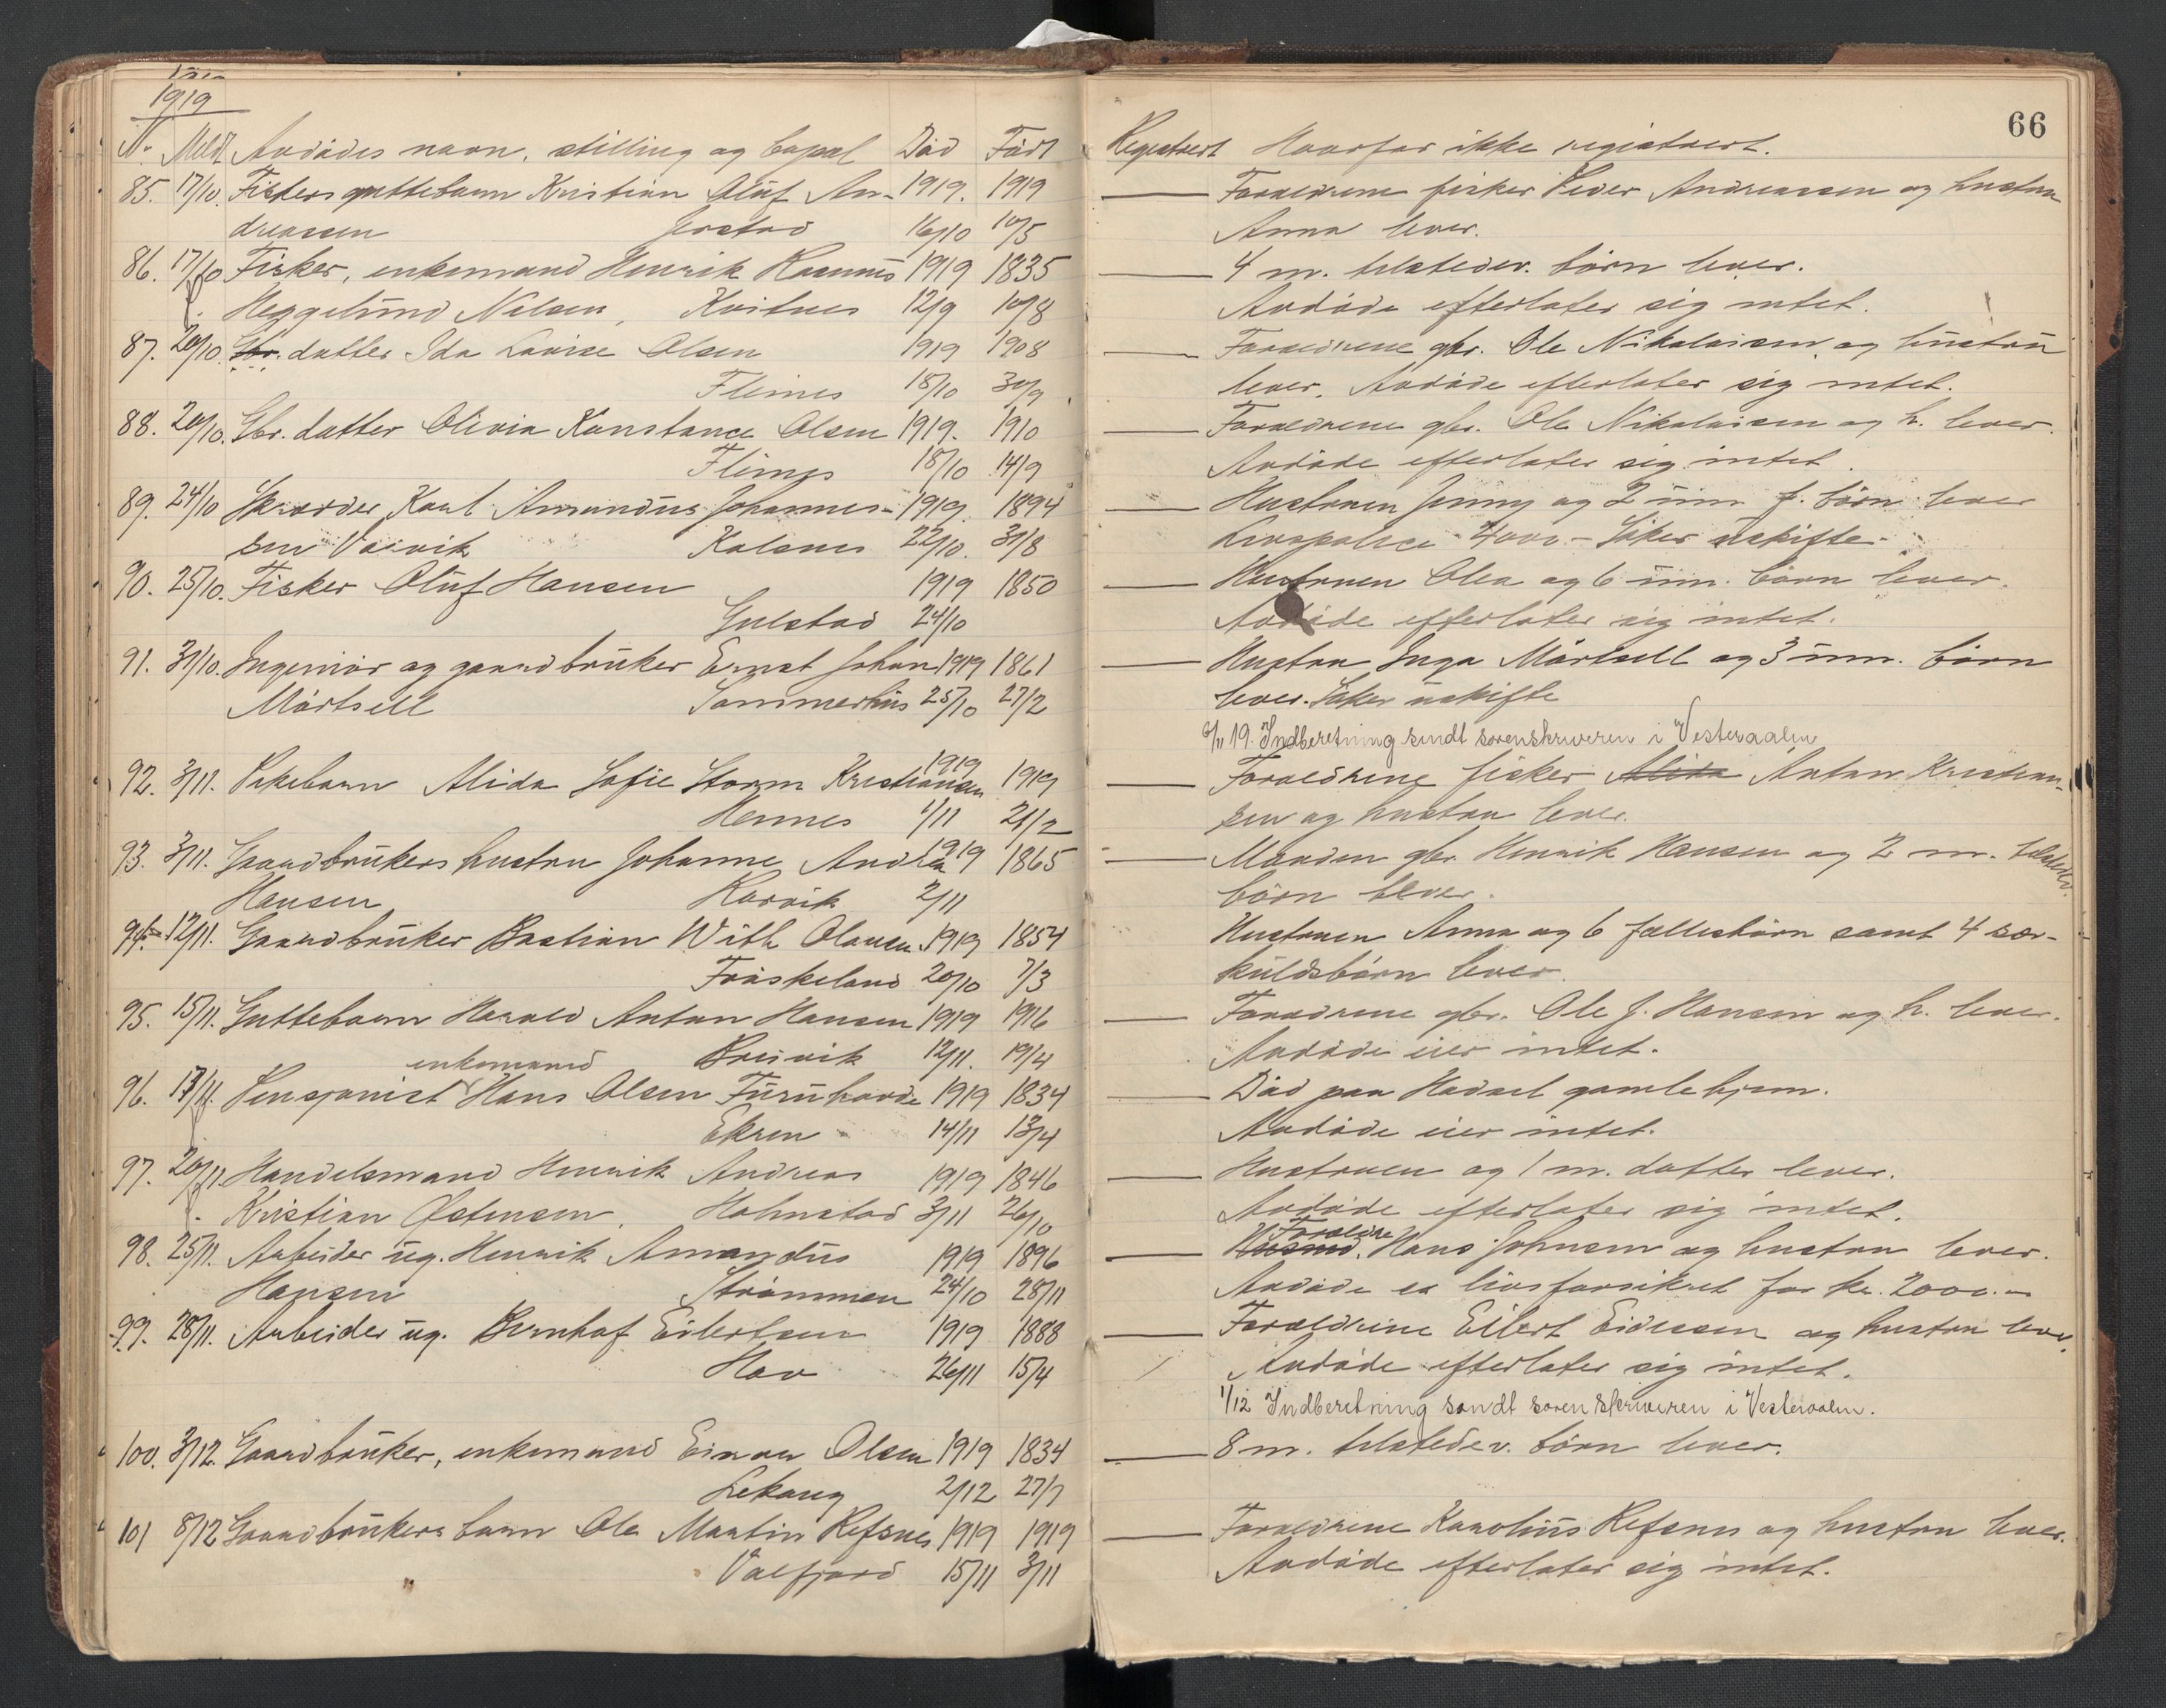 1919
No Meldt Avdødes navn, stilling og bopæl Død Født
85. 17/10. Fiskers guttebarn Kristian Oluf An- 1919. 1919
dreassen Jerstad 16/10 10/5
86. 17/10 Fisker, enkemand Henrik Rasmus 1919 1835
Heggelund Nilsen, Kvitnes 12/9 10/8
87. 20/10. Gbr. datter Ida Lovise Olsen 1919 1908
Fleines 18/10 30/9
88. 20/10. Gbr. datter Olivia Konstance Olsen 1919. 1910
Fleines 18/10 14/9
89. 24/10 Skrædder Karl Amandus Johannes- 1919. 1894
sen Valvik Kalsnes 22/10. 31/8
90. 25/10. Fisker Oluf Hansen 1919 1850
Gulstad 24/10
91. 31/10. Ingeniør og gaardbruker Ernst Johan 1919 1861
Mårtsell Sommerhus 25/10 27/2
92. 3/11. Pikebarn Alida Sofie Storm Kristiansen 1919 1919
Hennes 1/11 21/2
93. 3/11. Gaardbrukers hustru Johanne Andrea 1919 1865
Hansen Korvik 2/11
94. 12/11. Gaardbruker Bastian With Olausen 1919 1854
Frøskeland 20/10 7/3
95. 15/11. Guttebarn Harald Anton Hansen 1919 1916
Breivik 12/11. 19/4
enkemand
96. 17/11. Pensjonist Hans Olsen Furuhovde 1919 1834
Ekren 14/11 13/4
97. 20/11. Handelsmand Henrik Andreas 1919 1846
Kristian Østensen, Holmstad 3/11 26/10
98. 25/11. Arbeider ug. Henrik Amandus 1919 1896
Hansen Strømmen 24/10 28/11
99. 28/11. Arbeider ug. Bernhof Eilertsen 1919 1888
Hov 26/11 15/4
100. 3/12. Gaardbruker, enkemand Einar Olsen 1919 1834
Lekang 2/12 27/7
101 8/12 Gaardbrukers barn Ole Martin Refsnes 1919 1919
Valfjord 15/11 3/11
66
Registrert Hvorfor ikke registrert.
Forældrene fisker Peder Andreassen og hustru
Anna lever.
4 m. tilstedev. børn lever.
Avdøde efterlater sig intet.
Forældrene gbr. Ole Nikolaisen og hustru
lever. Avdøde efterlater sig intet.
Forældrene gbr. Ole Nikolaisen og h. lever.
Avdøde efterlater sig intet.
Hustruen Jenny og 2 um. f. børn lever
Livspolice 4000.- Søker uskifte.
Hustruen Olea og 6 um. børn lever.
Avdøde efterlater sig intet.
Hustru Inga Mårtsell og 3 um. børn
lever. Søker uskifte
6/11 19. Indberetning sendt sorenskriveren i Vesteraalen
Forældrene fisker Alida Anton Kristian-
sen og hustru lever.
Manden gbr. Henrik Hansen og 2 m. tilstedev.
børn lever.
Hustruen Anna og 6 fællesbørn samt 4 sær-
kuldsbørn lever.
Forældrene gbr. Ole J. Hansen og h. lever.
Avdøde eier intet.
Død paa Hadsel gamlehjem.
Avdøde eier intet.
Hustruen og 1 m. datter lever.
Avdøde efterlater sig intet.
Forældre
Husmd. Hans Johnsen og hustru lever.
Avdøde er livsforsikret for kr. 2000.-
Forældrene Eilert Eidissen og hustru lever.
Avdøde efterlater sig intet.
1/12 Indberetning sendt sorenskriveren i Vesteraalen.
8 m. tilstedev. børn lever.
Forældrene Karolius Refsnes og hustru lever.
Avdøde efterlater sig intet.